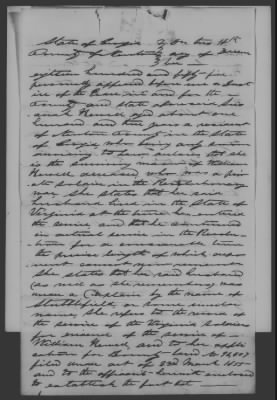 State of Georgia } On this 11th
County of           day of June
eighteen hundred and fifty-five
personally appeared before me a Just
ice of the Peace in and for the
County and State aforesaid
Newell aged about one
hundred and three years a resident
of                     in the State
of Georgia who being duly sworn
according to law declares that she
is the surviving widow of William
Newell deceased who was a pri
vate soldier in the Revolutionary
war. She states that her said
husband lived in the State of
Virginia at the time he entered
the service and that he continued
in actual service in the Revolu
tion for a considerable time
the precise length of which she
cannot now remember
She states that her said husband
(as well as she remembers) was
under a Captain by the name of
Stubblefield or some similar
name, she refers to the record of
the service of the Virginia Soldiers
for evidence of the service of
William Newell, and to her appli
cation for Bounty Land No
filed under act of 3rd March 1855
and to the                     enclosed
to establish the fact that